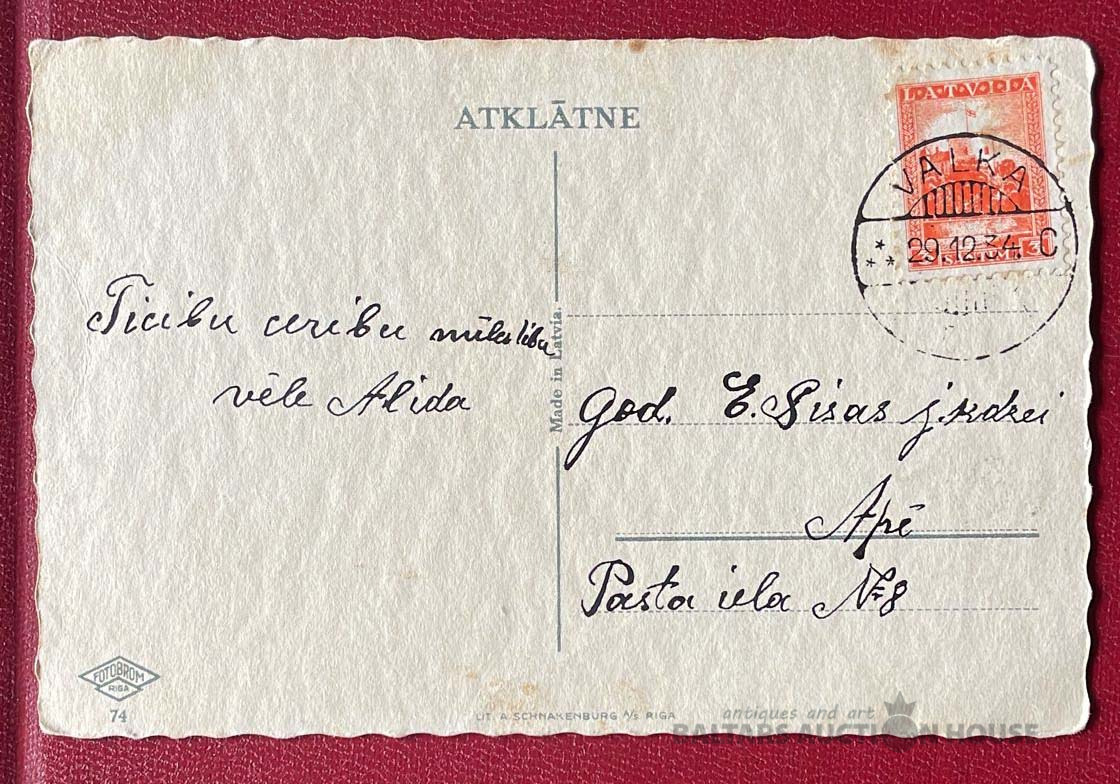 ATKLĀTNE
LATVIJA
VALKA
29.12.34. C
Ticību cerību mīlestību
vēle Alida
Made in Latvia.
God. E. Sisas j.kdzei
Apē
Pasta iela № 8
FOTOBROM
RIGA
74
LIT. A. SCHNAKENBURG A/S RIGA
antiques and art
BALTARS AUCTION HOUSE